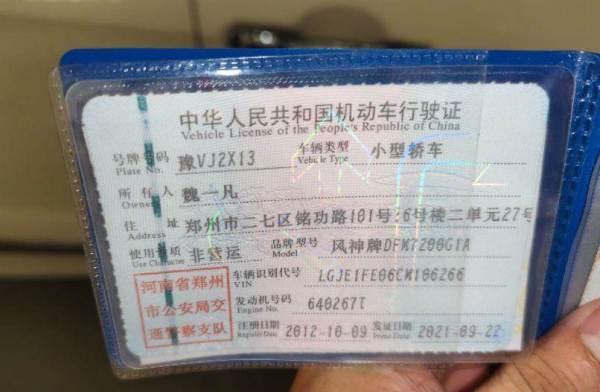 中华人民共和国机动车行驶证
Vehicle License of the People's Republic of China
号牌号码 Plate No. 豫VJ2X13 车辆类型 Vehicle Type 小型轿车
所有人 Owner 魏一凡
住址 Address 郑州市二七区铭功路101号36号楼二单元27号
使用性质 Use Character 非营运 品牌型号 Model 风神牌DFM7200G1A
车辆识别代号 VIN LGJE1FE06CM106266
发动机号码 Engine No. 640267T
注册日期 Register Date 2012-10-09 发证日期 Issue Date 2021-09-22
河南省郑州
市公安局交
通警察支队